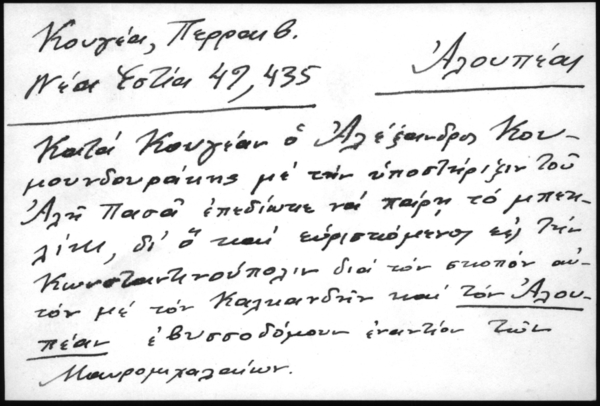 Κουγέα, Περραιβ.
Νέα Ἑστία 49, 435
Ἀλουπέας
Κατά Κουγέαν ὁ Ἀλέξανδρος Κου-
μουνδουράκης μέ τήν ὑποστήριξιν τοῦ
Ἀλῆ Πασᾶ ἐπεδίωκε νά πάρῃ τό μπεη-
λίκι, δι' ὅ καί εὑρισκόμενος εἰς τήν
Κωνσταντινούπολιν διά τόν σκοπόν αὐ-
τόν μέ τόν Καλκανδῆν καί τόν Ἀλου-
πέαν ἐβυσσοδόμουν ἐναντίον τῶν
Μαυρομιχαλαίων.